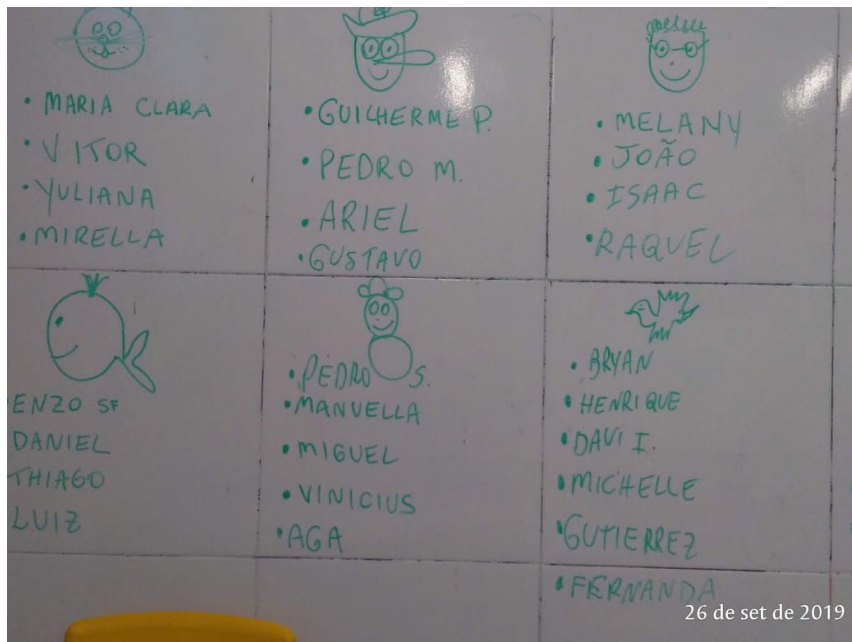 • MARIA CLARA
• VITOR
• YULIANA
• MIRELLA
• GUILHERME P.
• PEDRO M.
• ARIEL
• GUSTAVO
• MELANY
• JOÃO
• ISAAC
• RAQUEL
ENZO SF
DANIEL
THIAGO
LUIZ
• PEDRO S.
• MANUELLA
• MIGUEL
• VINICIUS
• AGA
• BRYAN
• HENRIQUE
• DAVI I.
• MICHELLE
• GUTIERREZ
• FERNANDA
26 de set de 2019